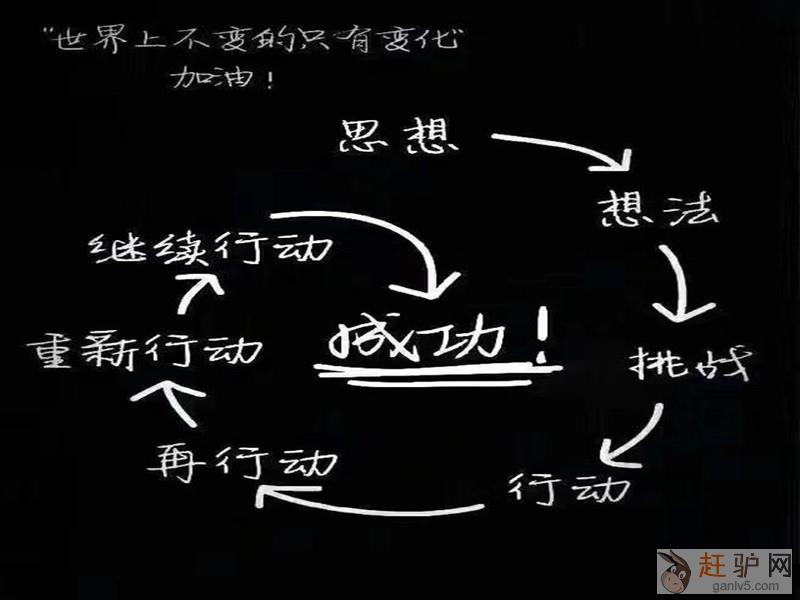 "世界上不变的只有变化"
加油!
思想
想法
挑战
行动
再行动
重新行动
继续行动
成功!
赶驴网
ganlv5.com